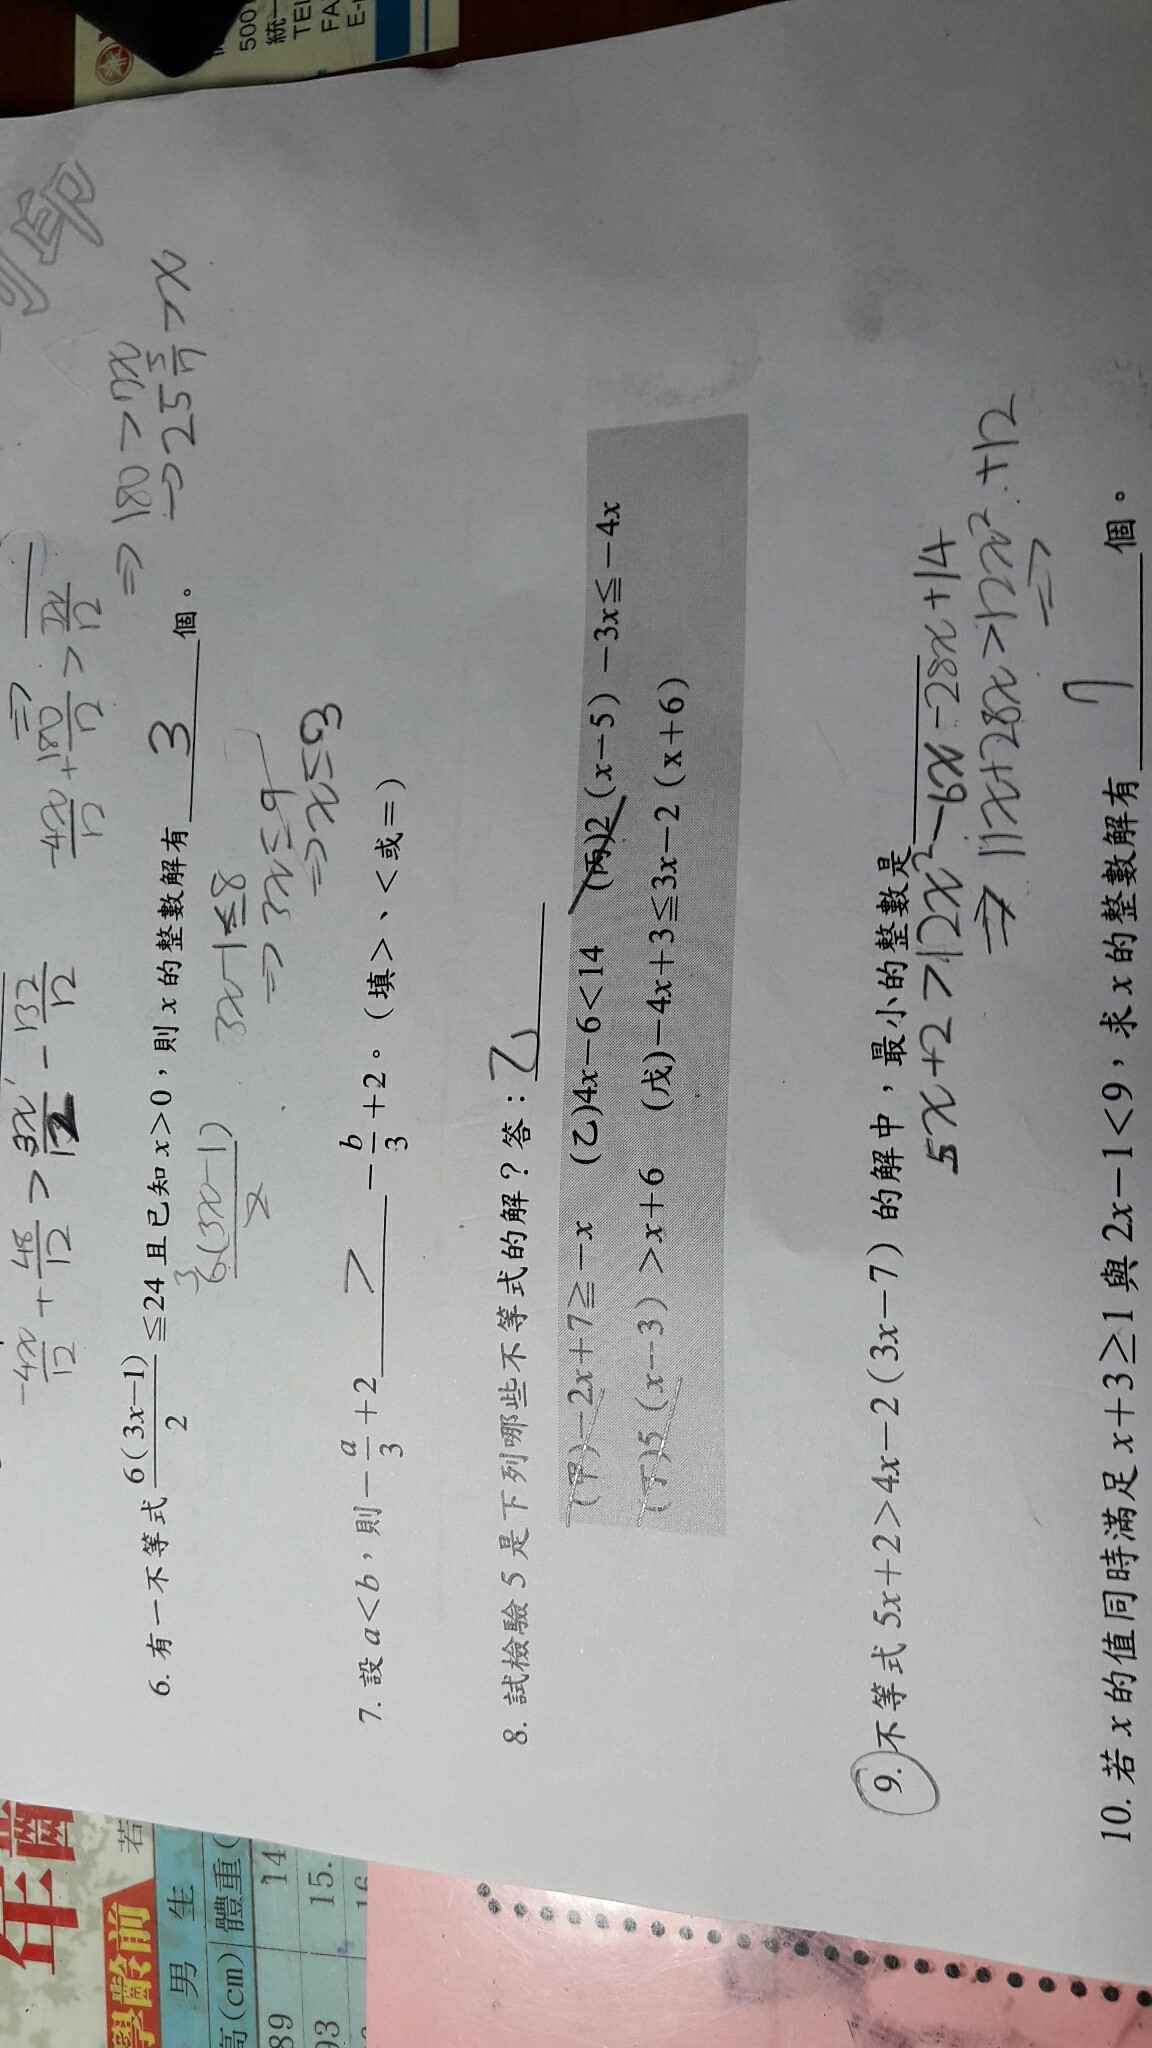 -4x/12 + 48/12 > 3x/12 - 132/12
⇒
-4x/12 + 180/12 > 3x/12
⇒ 180 > 7x
⇒ 25 5/7 > x
印
6. 有一不等式 6(3x-1)/2 ≦24 且已知 x>0，則 x 的整數解有 3 個。
3
6(3x-1)/2
3x-1≤8
⇒ 3x≤9
⇒ x≤3
7. 設 a<b，則 -a/3+2 > -b/3+2。（填>、<或=）
8. 試檢驗 5 是下列哪些不等式的解？答：乙
(甲)-2x+7≧-x (乙)4x-6<14 (丙)2（x-5）-3x≦-4x
(丁)5（x-3）>x+6 (戊)-4x+3≦3x-2（x+6）
9. 不等式 5x+2>4x-2（3x-7）的解中，最小的整數是
5x+2>12x²-6x-28x+14
⇒ 11x+28x>12x²+12
⇒
10. 若 x 的值同時滿足 x+3≥1 與 2x-1<9，求 x 的整數解有 7 個。
500
統一
TEL
FA
E-
年齡
學齡前
若
男生
高(cm) 體重(
89 14
93 15.
16